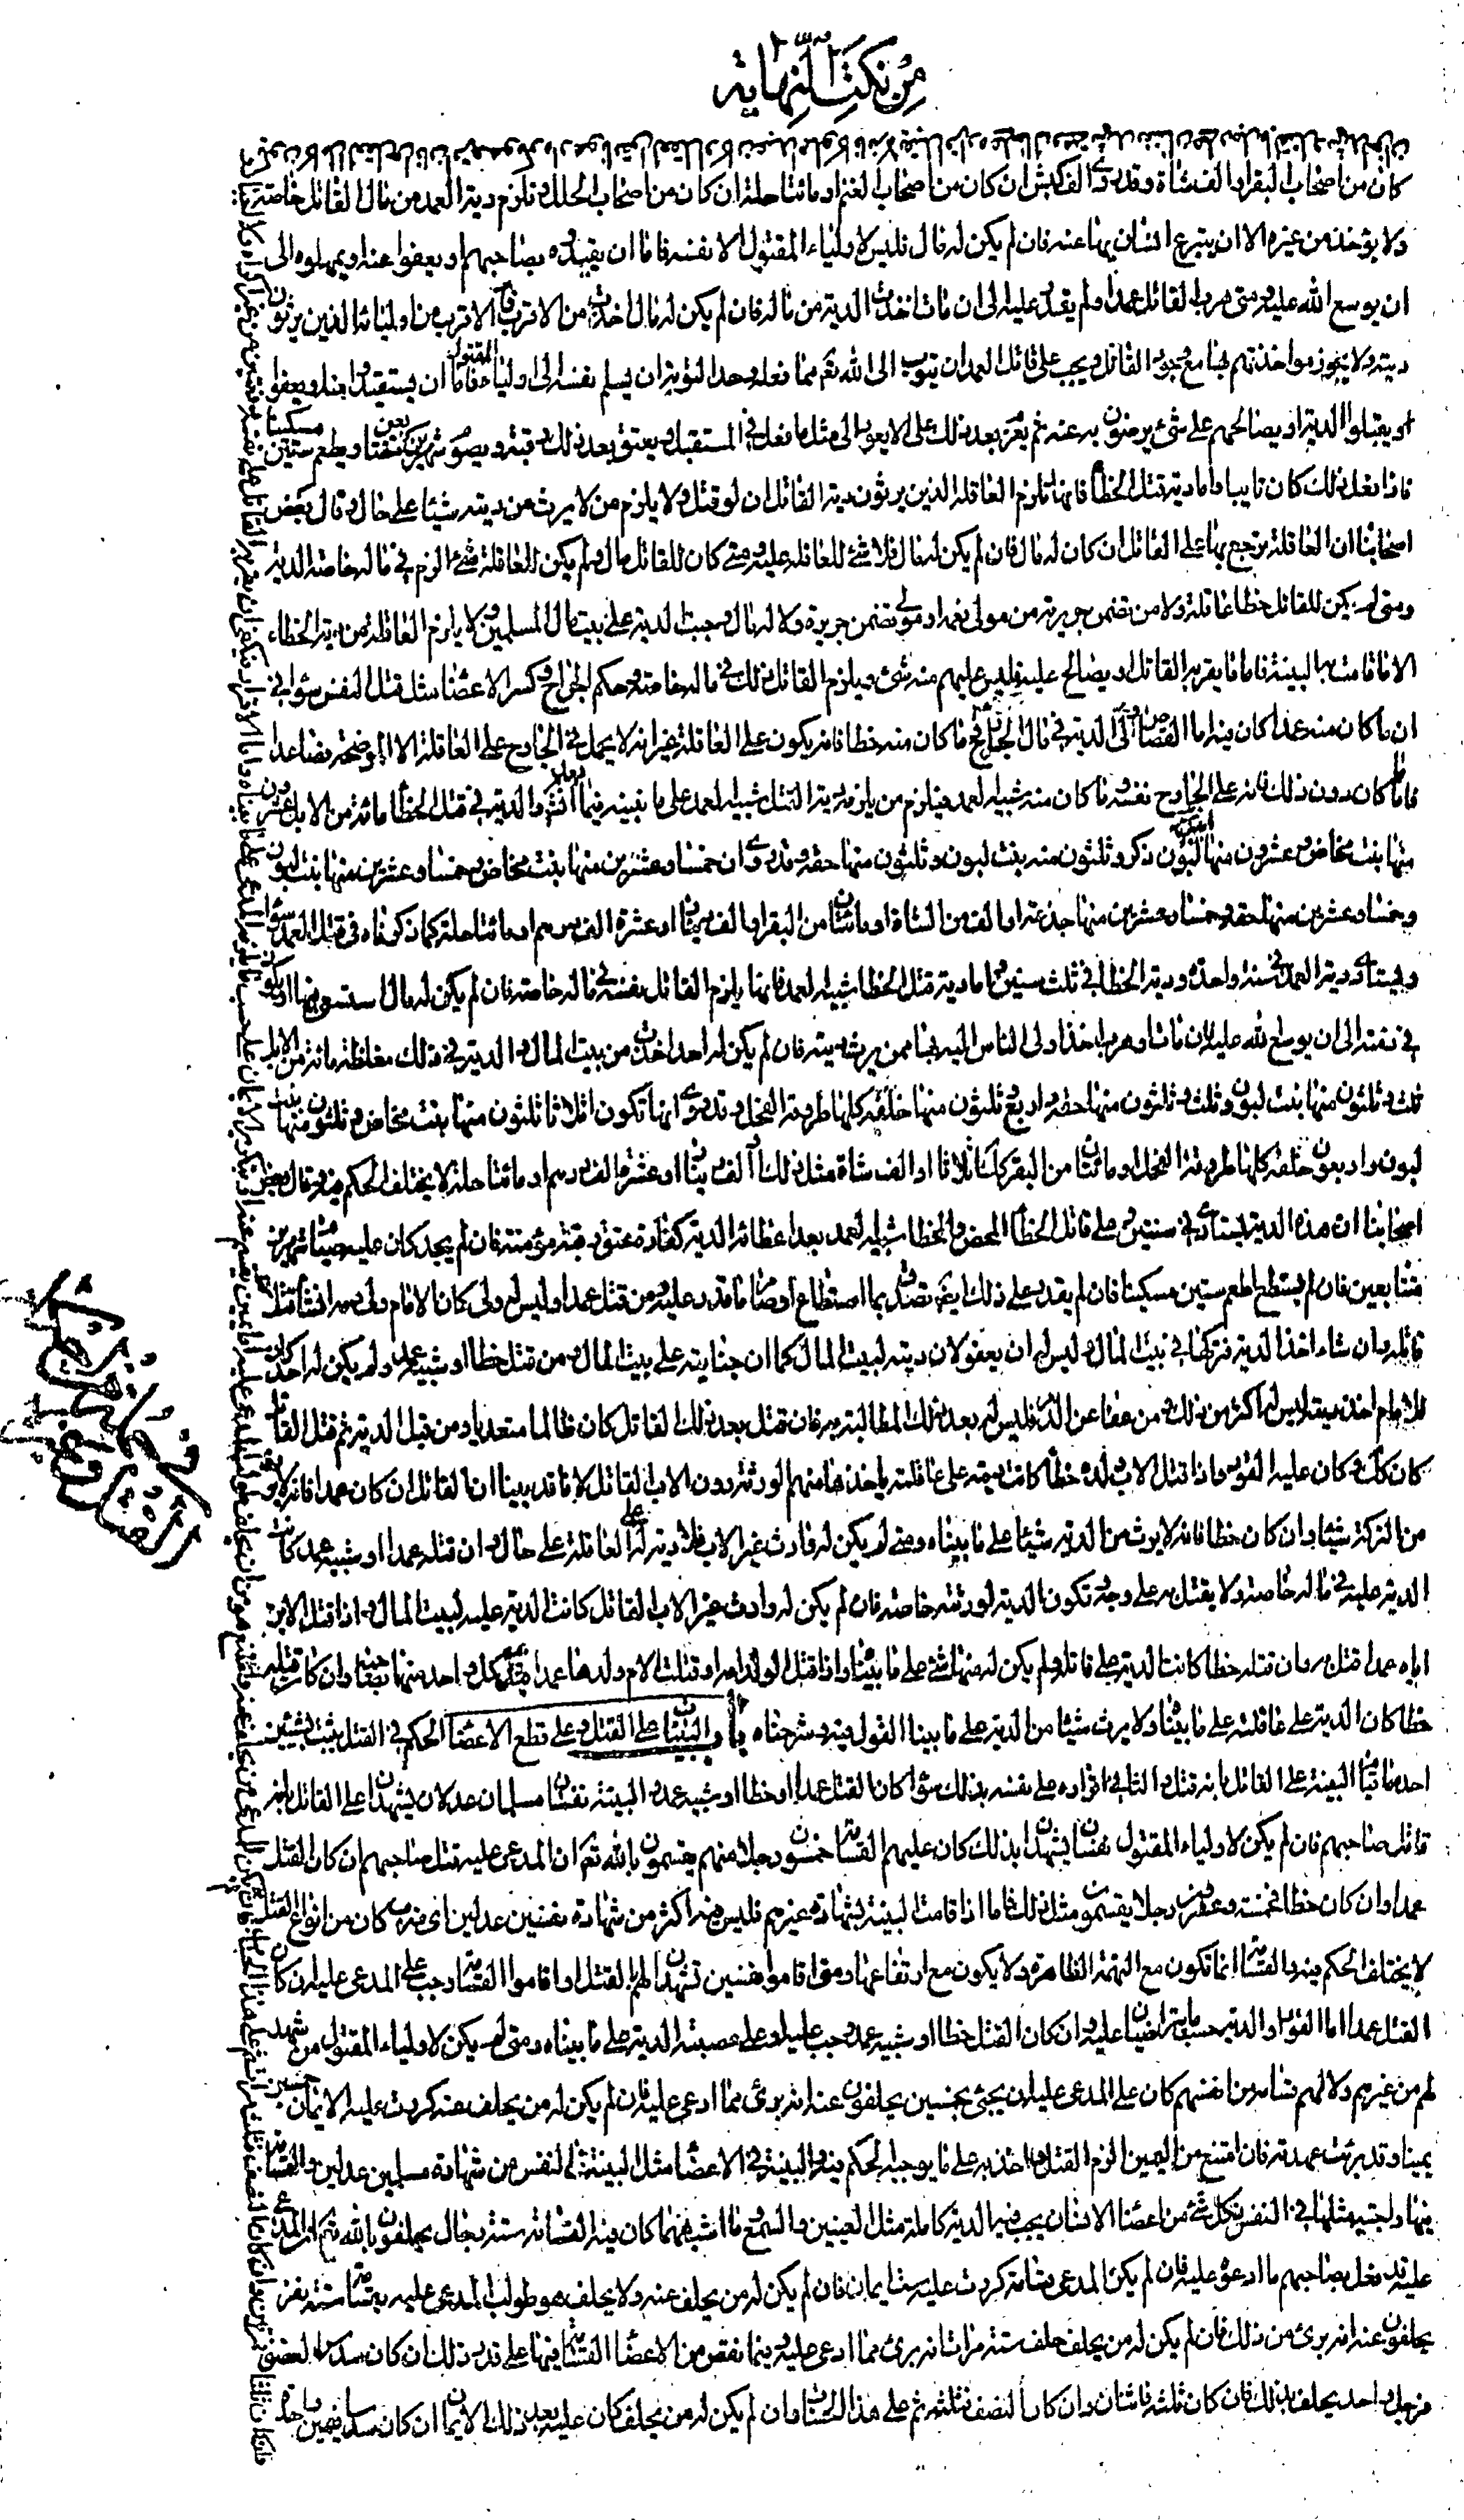 من نكت النهاية
كان من اصحاب البقر او الف شاة وقد روى الف كبش ان كان من اصحاب الغنم او مائتا حلة ان كان من اصحاب الحلل وتلزم دية العمد من مال القاتل خاصة
ولا يؤخذ من غيره الا ان يتبرع انسان بها عنه فان لم يكن له مال فليس لاولياء المقتول الا نفسه فاما ان يقيدوه بصاحبهم او يعفوا عنه او يمهلوه الى
ان يوسع الله عليه ومتى هرب القاتل عمدا ولم يقدر عليه الى ان مات اخذت الدية من ماله فان لم يكن له مال اخذت من الاقرب فالاقرب من اوليائه الذين يرثون
ديته ولا يجوز مؤاخذتهم بها مع وجود القاتل ويجب على قاتل العمد ان يتوب الى الله تعم مما فعله وحد التوبة ان يسلم نفسه الى اولياء المقتول فاما ان يستقيدوا منه او يعفوا
او يقبلوا الدية او يصالحهم على شئ يرضون به عنه ثم يعزم بعد ذلك على الا يعود الى مثل ما فعل في المستقبل ويعتق بعد ذلك رقبة ويصوم شهرين متتابعين ويطعم ستين مسكينا
فاذا فعل ذلك كان تايبا واما دية قتل الخطأ فانها تلزم العاقلة الذين يرثون دية القاتل ان لو قتل ولا يلزم من لا يرث من ديته شيئا على حال وقال بعض
اصحابنا ان العاقلة ترجع بها على القاتل ان كان له مال فان لم يكن له مال فلا شئ للعاقلة عليه ومتى كان للقاتل مال ولم يكن للعاقلة شئ الزم في ماله خاصة الدية
ومتى لم يكن للقاتل خطا عاقلة ولا من تضمن جريرته من مولى نعمة او مولى تضمن جريرة ولا له مال وجبت الدية على بيت مال المسلمين ولا يلزم العاقلة من دية الخطاء
الا ما قامت بها البينة فاما ما يقر به القاتل او يصالح عليه فليس عليهم منه شئ ويلزم القاتل ذلك في ماله خاصة وحكم الجراح وكسر الاعضا مثل قتل النفس سوا في
ان ما كان منه عمدا كان فيه اما القصاص او الدية في مال الجارح وما كان منه خطا فانه يكون على العاقلة غير انه لا يحمل في الجارح على العاقلة الا الموضحة فصاعدا
فاما ما كان دون ذلك فانه على الجارح نفسه وما كان منه شبيه العمد فيلزم من يلزمه دية القتل شبيه العمد على ما نبينه فيما والدية في قتل الخطأ مائة من الابل عشرون
منها بنت مخاض وعشرون منها ابن لبون ذكر وثلثون منه بنت لبون وثلثون منها حقه وقد روى ان خمسا وعشرين منها بنت مخاض وخمسا وعشرين منها بنت لبون
وخمسا وعشرين منها حقه وخمسا وعشرين منها جذعة او الف من الشاة او مائتان من البقر او الف دينار او عشرة الف درهم او مائتا حلة كما ذكرناه في قتل العمد سواء
ويستادى دية العمد في سنة واحدة ودية الخطأ في ثلث سنين واما دية قتل الخطا شبيه العمد فانها يلزم القاتل بنفسه في ماله خاصة فان لم يكن له مال استسعي فيها او يكون
في ذمته الى ان يوسع الله عليه فان مات او هرب اخذ اولى الناس اليه بها ممن يرث ديته فان لم يكن له احد اخذت من بيت المال والدية في ذلك مغلظة مائة من الابل
ثلث وثلثون منها بنت لبون وثلث وثلثون منها حقه واربع وثلثون منها خلفه كلها طروقة الفحل وقد روى انها تكون اثلاثا ثلثون منها بنت مخاض وثلثون منها بنت
لبون واربعون خلفه كلها طروقة الفحل او مائتان من البقر كذلك اثلاثا او الف شاة مثل ذلك او الف دينار او عشرة الف درهم او مائتا حلة لا يختلف الحكم فيه وقال بعض
اصحابنا ان هذه الدية يستادى في سنتين وعلى قاتل الخطأ المحض والخطا شبيه العمد بعد اعطائه الدية كفارة عتق رقبة مؤمنة فان لم يجد كان عليه صيام شهرين
متتابعين فان لم يستطع اطعم ستين مسكينا فان لم يقدر على ذلك ايضا تصدق بما استطاع او صام ما قدر عليه ومن قتل عمدا وليس له ولى كان الامام ولى دمه ان شاء قتل
قاتله وان شاء اخذ الدية فتركها في بيت المال وليس له ان يعفو لان ديته لبيت المال كما ان جنايته على بيت المال ومن قتل خطا او شبيه عمد ولم يكن له احد كان
للامام اخذ ديته ليس له اكثر من ذلك ومن عفا عن الدم فليس له بعد ذلك المطالبة به فان قتل بعد ذلك القاتل كان ظالما متعديا ومن قبل الدية ثم قتل القاتل
كان كذلك وكان عليه القود واذا قتل الاب ولده خطأ كانت ديته على عاقلته ياخذها منهم الورثة دون الاب القاتل لانا قد بينا ان القاتل ان كان عمدا فانه لا يرث
من التركة شيئا وان كان خطا فانه لا يرث من الدية شيئا على ما بيناه ومتى لم يكن له وارث غير الاب فلا دية له على العاقلة على حال وان قتله عمدا او شبيه عمد كانت
الدية عليه في ماله خاصة ولا يقتل به على وجه وتكون الدية لورثته خاصة فان لم يكن له وارث غير الاب القاتل كانت الدية عليه لبيت المال واذا قتل الابن
اباه عمدا قتل به وان قتله خطا كانت الدية على عاقلته ولم يكن له منها شئ على ما بيناه واذا قتل الولد امه او قتلت الام ولدها عمدا قتل كل واحد منهما بصاحبه وان كان قتله
خطا كان الدية على عاقلته على ما بيناه ولا يرث شيئا من الدية على ما بينا القول فيه وشرحناه باب البينات على القتل وعلى قطع الاعضا الحكم في القتل يثبت بشيئين
احدهما قيام البينة على القاتل بانه قتل والثاني اقراره على نفسه بذلك سواء كان القتل عمدا او خطا او شبيه عمد والبينة نفسان مسلمان عدلان يشهدان على القاتل بانه
قاتل صاحبهم فان لم يكن لاولياء المقتول نفسان يشهدان بذلك كان عليهم القسامة خمسون رجلا منهم يقسمون بالله تعم ان المدعى عليه قتل صاحبهم ان كان القتل
عمدا وان كان خطا فخمسة وعشرون رجلا يقسمون مثل ذلك فاما اذا قامت البينة بشهادة غيرهم فليس فيه اكثر من شهادة نفسين عدلين اى ضرب كان من انواع القتل
لا يختلف الحكم فيه والقسامة انما تكون مع التهمة الظاهرة ولا يكون مع ارتفاعها ومتى اقاموا نفسين تشهدان لهم بالقتل او اقاموا القسامة وجب على المدعى عليه ان كان
القتل عمدا اما القود او الدية حسب ما يتراضيان عليه وان كان القتل خطا او شبيه عمد وجب عليه او على عصبته الدية على ما بيناه ومتى لم يكن لاولياء المقتول من يشهد
لهم من غيرهم ولا لهم قسامة من انفسهم كان على المدعى عليه ان يجئ بخمسين يحلفون عنه انه برئ مما ادعى عليه فان لم يكن له من يحلف عنه كررت عليه الايمان خمسين
يمينا وقد برئت عهدته فان امتنع من اليمين الزم القتل واخذ به على ما يوجبه الحكم فيه والبينة في الاعضا مثل البينة في النفس من شهادة مسلمين عدلين والقسامة
فيها واجبة مثلها في النفس وكل شئ من اعضا الانسان يجب فيه الدية كاملة مثل العينين والسمع وما اشبههما كان فيه القسامة ستة رجال يحلفون بالله تعم ان المدعى
عليه قد فعل بصاحبهم ما ادعوه عليه فان لم يكن للمدعى قسامة كررت عليه ست ايمان فان لم يكن له من يحلف عنه ولا يحلف هو طولب المدعى عليه بقسامة ستة نفر
يحلفون عنه انه برئ من ذلك فان لم يكن له من يحلف حلف ستة مرات انه برئ مما ادعى عليه وفيما نقص من الاعضا القسامة فيها على قدر ذلك ان كان سدس العضو
فرجل واحد يحلف بذلك فان كان ثلثه فاثنان وان كان النصف فثلثة ثم على هذا الحساب وان لم يكن له من يحلف كان عليه بعدد ذلك الايمان ان كان سدسا فيمين واحدة